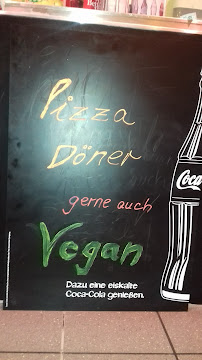 Pizza
Döner
gerne auch
Vegan
Dazu eine eiskalte
Coca-Cola genießen.
Coca